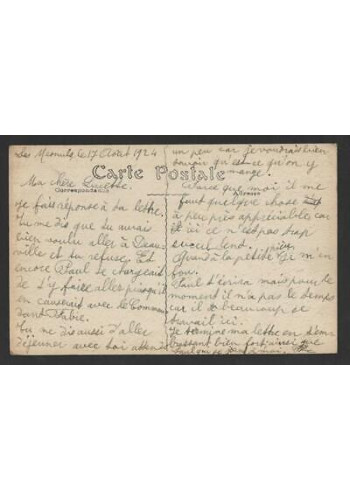 Les Mesnuls, le 17 Août 1924
Carte Postale
Correspondance
Adresse
Ma chère
Je fais réponse à ta lettre.
Tu me dis que tu aurais
bien voulu aller à Deau-
ville et tu refuse. Et
encore Paul se chargeait
de t'y faire aller puisqu'il
en causerait avec le Comman-
dant Fabre.
Tu me dis aussi d'aller
déjeuner avec toi
un peu car je voudrais bien
savoir qu'est-ce qu'on y
mange.
Parce que moi il me
faut quelque chose
à peu près appréciable car
ici ce n'est pas trop
Quand à la petite je m'en
fous.
Paul t'écrira mais pour le
moment il n'a pas le temps
car il a beaucoup de
travail ici.
Je termine ma lettre en t'em-
brassant bien fort ainsi que